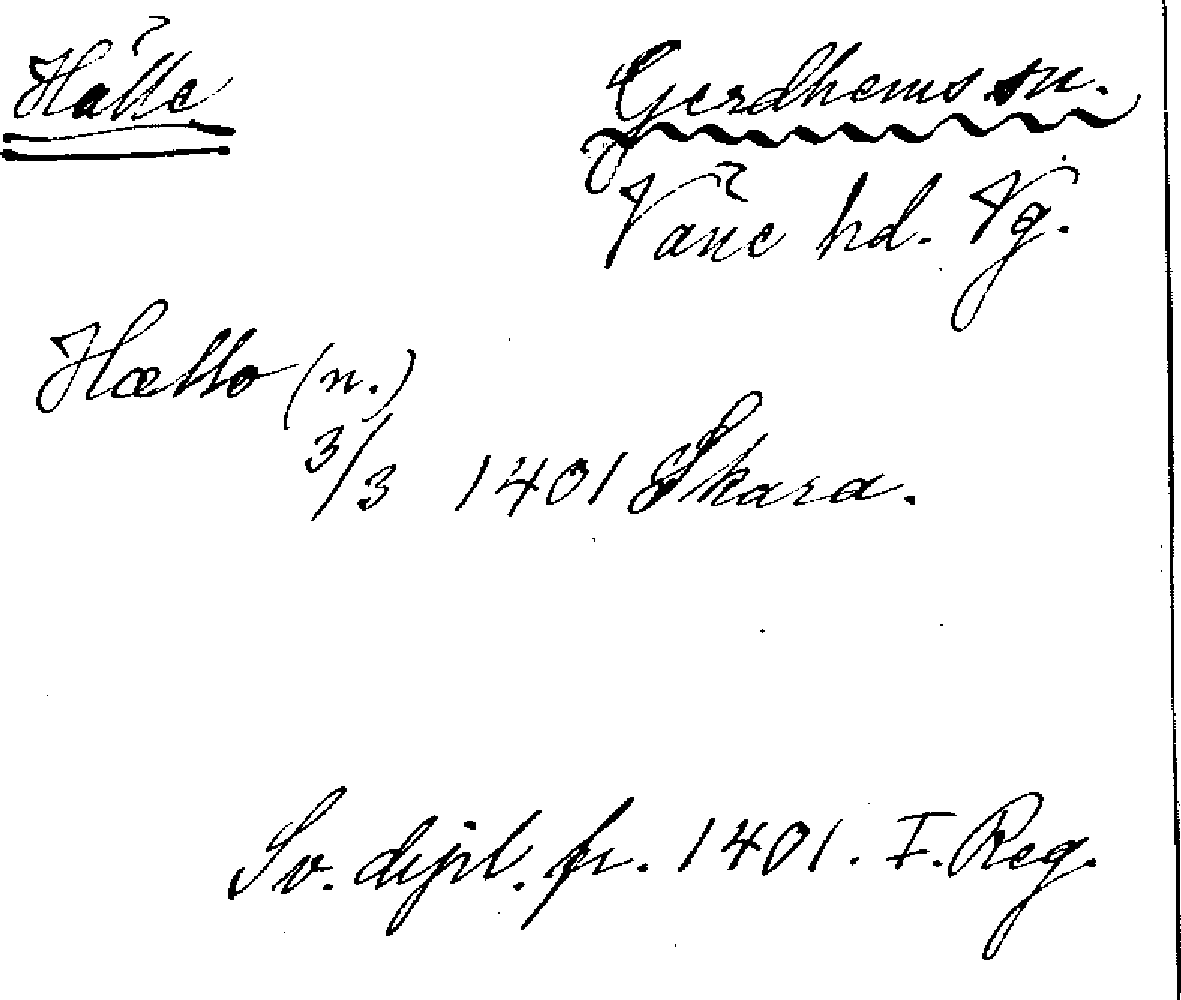 Hälle
Gerdhems sn.
Väne hd. Vg.
Hællo (n.)
3/3 1401 Skara.
Sv. dipl. fr. 1401. I. Reg.